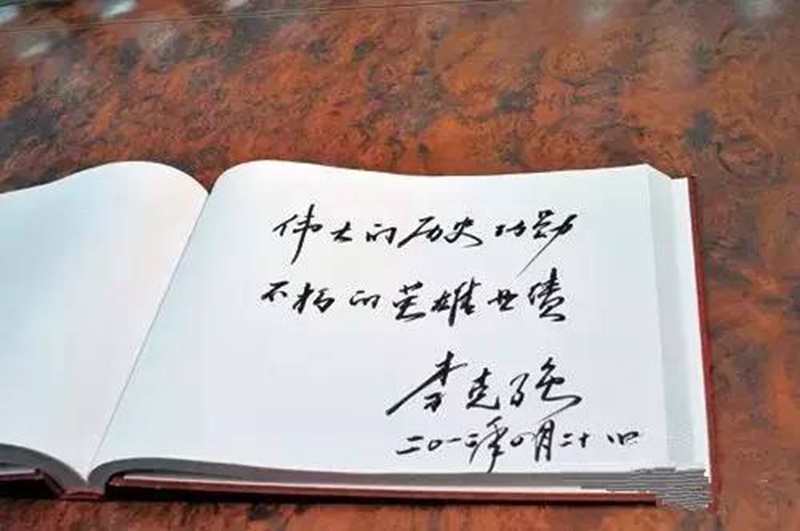 伟大的历史功勋
不朽的英雄业绩
李克强
二〇一二年四月二十八日